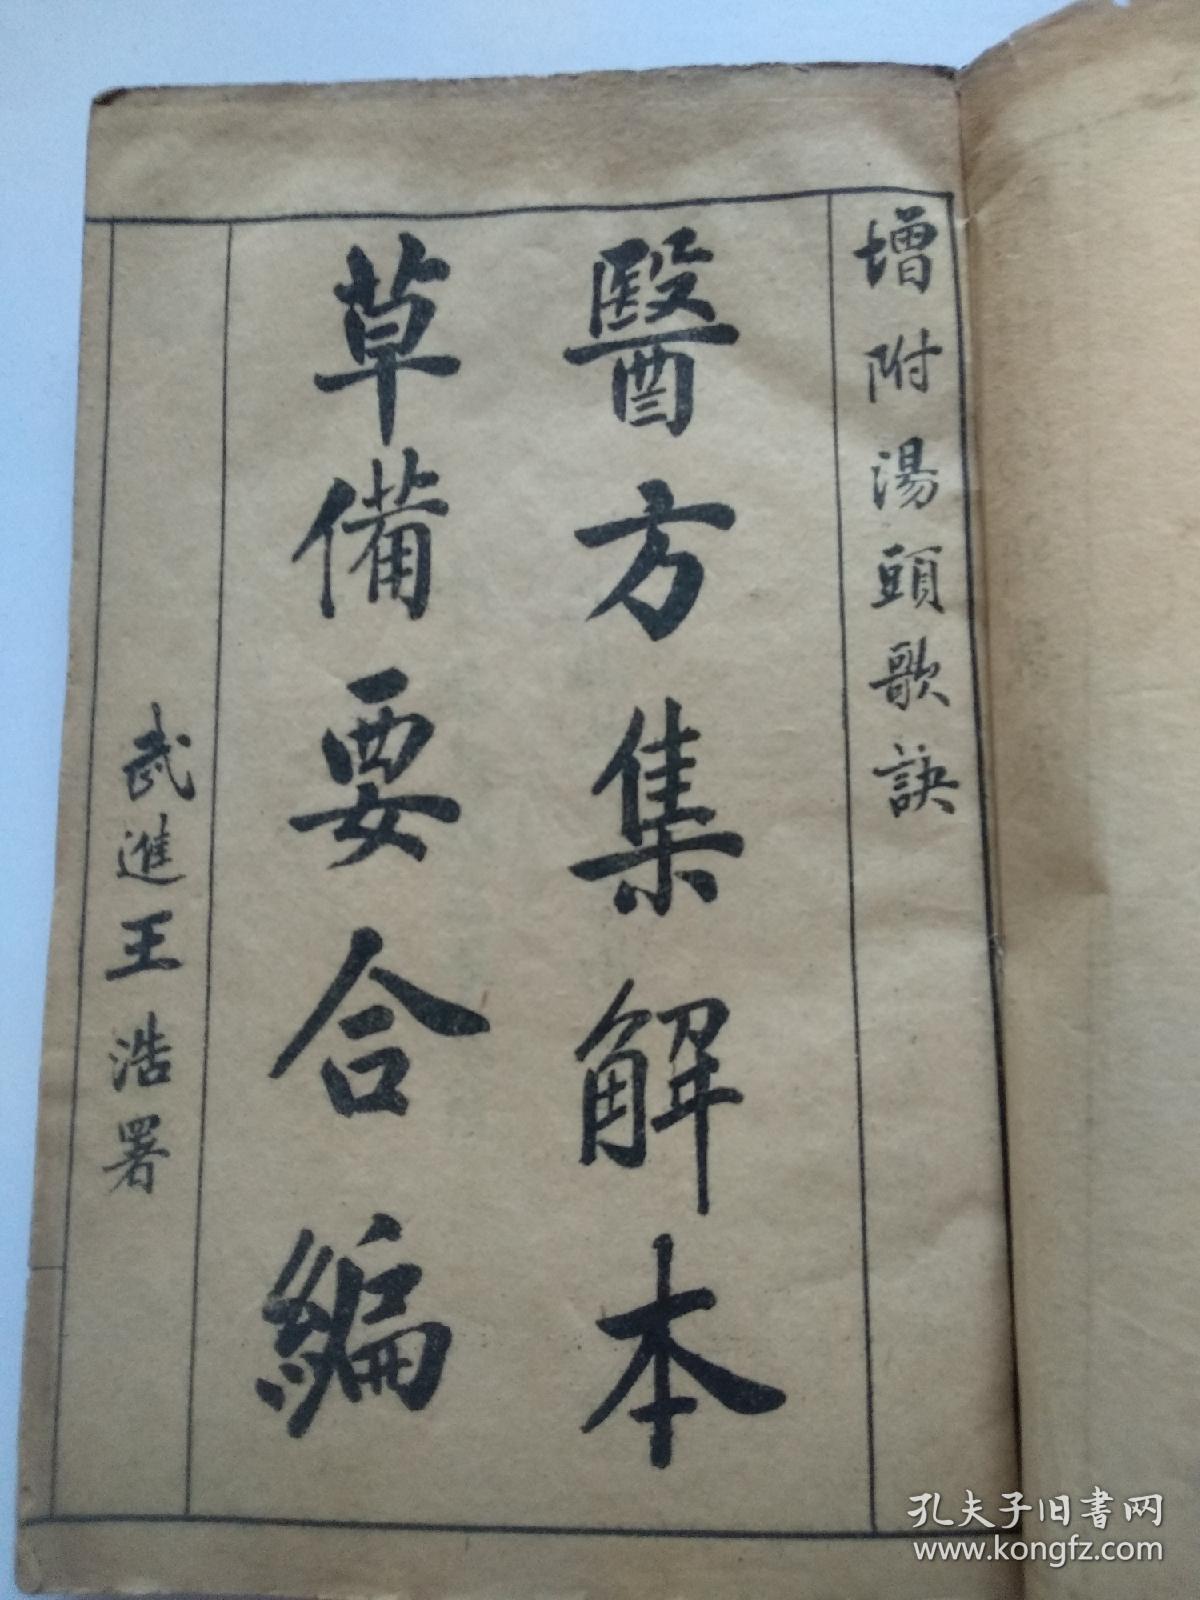 增附湯頭歌訣
醫方集解本
草備要合編
武進王浩署
孔夫子旧书网
www.kongfz.com